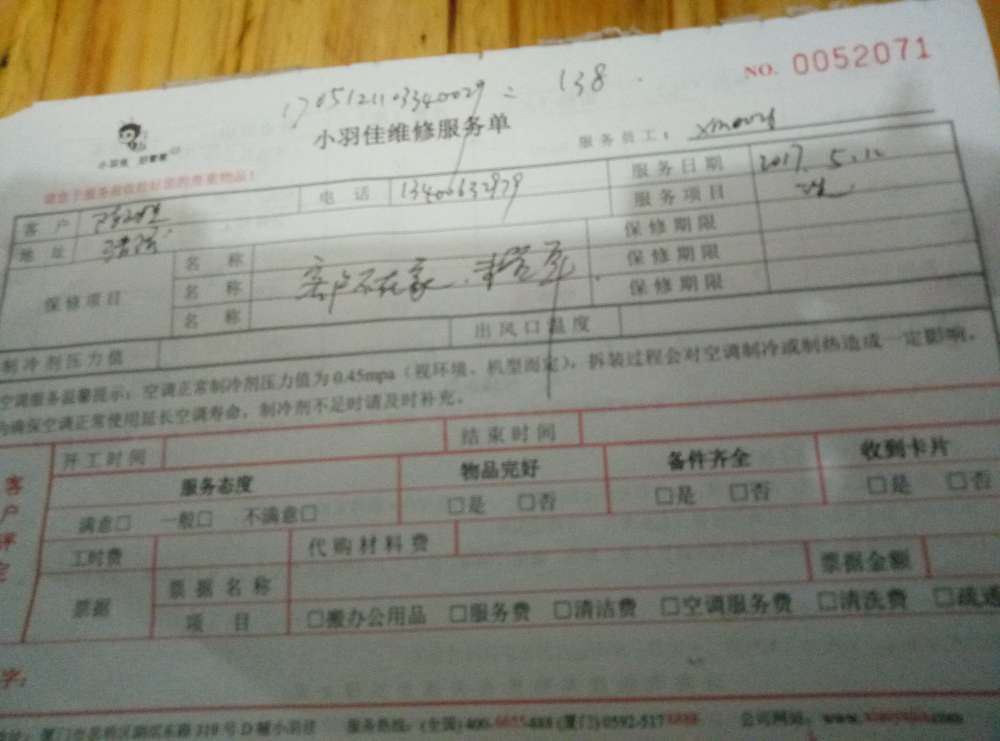 NO. 0052071
1705121103340029 = 138.
小羽佳维修服务单
小羽佳 好管家
服务员工：
请您于服务前收捡好您的贵重物品！
客户
电话 13400632979
服务日期 2017.5.12
地址
服务项目
保修项目
名称 保修期限
名称 客户不在家. 保修期限
名称 保修期限
制冷剂压力值 出风口温度
空调服务温馨提示：空调正常制冷剂压力值为0.45mpa（视环境、机型而定），拆装过程会对空调制冷或制热造成一定影响。
为确保空调正常使用延长空调寿命，制冷剂不足时请及时补充。
客户评定
开工时间 结束时间
服务态度 物品完好 备件齐全 收到卡片
满意□ 一般□ 不满意□ □是 □否 □是 □否 □是 □否
工时费 代购材料费
票据 票据名称 票据金额
项目 □搬办公用品 □服务费 □清洁费 □空调服务费 □清洗费
字：
319号D幢小羽佳 服务热线：(全国)400-6655488 (厦门)0592-517 公司网站：www.